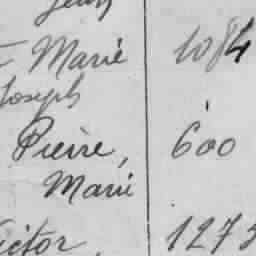 Jean
Marie 1084
Joseph
Pierre, 600
Marie
Victor, 1273